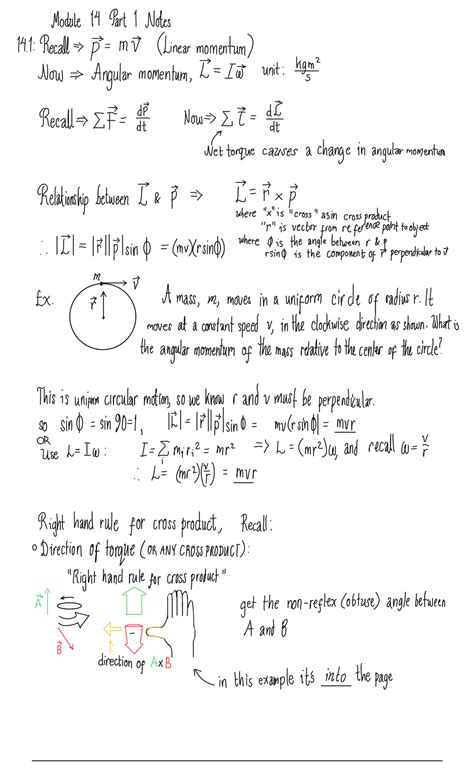 Module 14 Part 1 Notes
14.1: Recall ⇒ p⃗ = mv⃗ (Linear momentum)
Now ⇒ Angular momentum, L⃗ = Iω⃗ unit: kgm²/s
Recall ⇒ ΣF⃗ = dp⃗/dt Now ⇒ Στ⃗ = dL⃗/dt
Net torque causes a change in angular momentum
Relationship between L⃗ & p⃗ ⇒ L⃗ = r⃗ × p⃗
where "x" is "cross" as in cross product
"r" is vector from reference point to object
∴ |L⃗| = |r⃗||p⃗|sin ϕ = (mv)(rsinϕ) where ϕ is the angle between r & p
rsinϕ is the component of r⃗ perpendicular to v⃗
m v⃗
r⃗
Ex. A mass, m, moves in a uniform circle of radius r. It
moves at a constant speed v, in the clockwise direction as shown. What is
the angular momentum of the mass relative to the center of the circle?
This is uniform circular motion, so we know r and v must be perpendicular.
so sinϕ = sin90=1, |L⃗| = |r⃗||p⃗|sinϕ = mv(rsinϕ) = mvr
OR
Use L=Iω: I = Σ mᵢrᵢ² = mr² ⇒ L = (mr²)ω, and recall ω = v/r
i
∴ L = (mr²)(v/r) = mvr
Right hand rule for cross product, Recall:
○ Direction of torque (OR ANY CROSS PRODUCT):
"Right hand rule for cross product"
A⃗
B⃗
get the non-reflex (obtuse) angle between
A and B
direction of A×B
in this example it's into the page